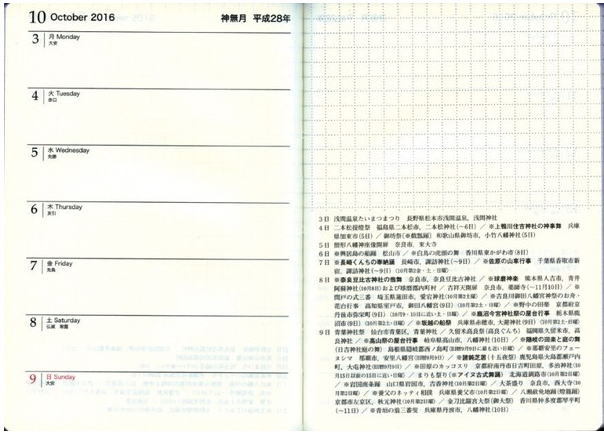 10 October 2016 神無月 平成28年
3 月 Monday
大安
4 火 Tuesday
赤口
5 水 Wednesday
先勝
6 木 Thursday
友引
7 金 Friday
先負
8 土 Saturday
仏滅 寒露
9 日 Sunday
大安
3日 浅間温泉たいまつまつり 長野県松本市浅間温泉，浅間神社
4日 二本松提燈祭 福島県二本松市，二本松神社(〜6日) ／ ※上鴨川住吉神社の神事舞 兵庫
県加東市(5日) ／ 御坊祭(※戯瓢踊) 和歌山県御坊市，小竹八幡神社(5日)
5日 大仏殿 奈良市，東大寺
6日 松山市 ／ 香川県東かがわ市(8日)
7日 ※長崎くんちの奉納踊 長崎市，諏訪神社(〜9日) ／ ※佐原の山車行事 千葉県香取市新
宿，諏訪神社(〜9日)(10月第2金・土・日曜)
8日 ※奈良豆比古神社の翁舞 奈良市，奈良豆比古神社 ／ ※球磨神楽 熊本県人吉市，青井
阿蘇神社(10月8日)および球磨郡内町村 ／ 奈良市，薬師寺(〜11月10日) ／ ※
埼玉県蓮田市，愛宕神社(10月第2土曜) ／ ※吉良川御田八幡宮神祭のお舟・
花台行事 高知県室戸市，御田八幡宮(9日)(10月第2土・日曜) ／ ※野中の田楽 京都府京
丹後市弥栄町(9日) ／ ※鹿沼今宮神社祭の屋台行事 栃木県鹿
沼市(9日)(10月第2土・日曜) ／ ※坂越の船祭 兵庫県赤穂市，大避神社(9日)(10月第2土・日曜)
9日 青葉神社祭 仙台市青葉区，青葉神社 ／ 久留米高良祭(高良くんち) 福岡県久留米市，高
良神社 ／ ※高山祭の屋台行事 岐阜県高山市，八幡神社(10日) ／ ※隠岐の田楽と庭の舞
(日吉神社庭の舞) 島根県隠岐郡西ノ島町
那覇市，安里八幡宮(旧暦9月9日) ／ ※諸鈍芝居(十五夜祭) 鹿児島県大島郡瀬戸内
町，大屯神社(旧暦9月9日) ／ ※田原のカッコスリ 京都府南丹市日吉町田原，多治神社(10
月15日以前の日曜) ／ まりも祭り(※アイヌ古式舞踊) 北海道釧路市(〜10日)
／ ※岩国南条踊 山口県岩国市，吉香神社(10月第2日曜) ／ 大茶盛り 奈良市，西大寺(10
月第2日曜) ／ ※養父のネッテイ相撲 兵庫県養父市(10月第2日曜) ／ 八瀬赦免地踊(燈籠踊)
京都市左京区，秋元神社(10月第2日曜) ／ 金刀比羅宮大祭(御大祭) 香川県仲多度郡琴平町
(〜11日) ／ ※青垣の翁三番叟 兵庫県丹波市，八幡神社(10日)